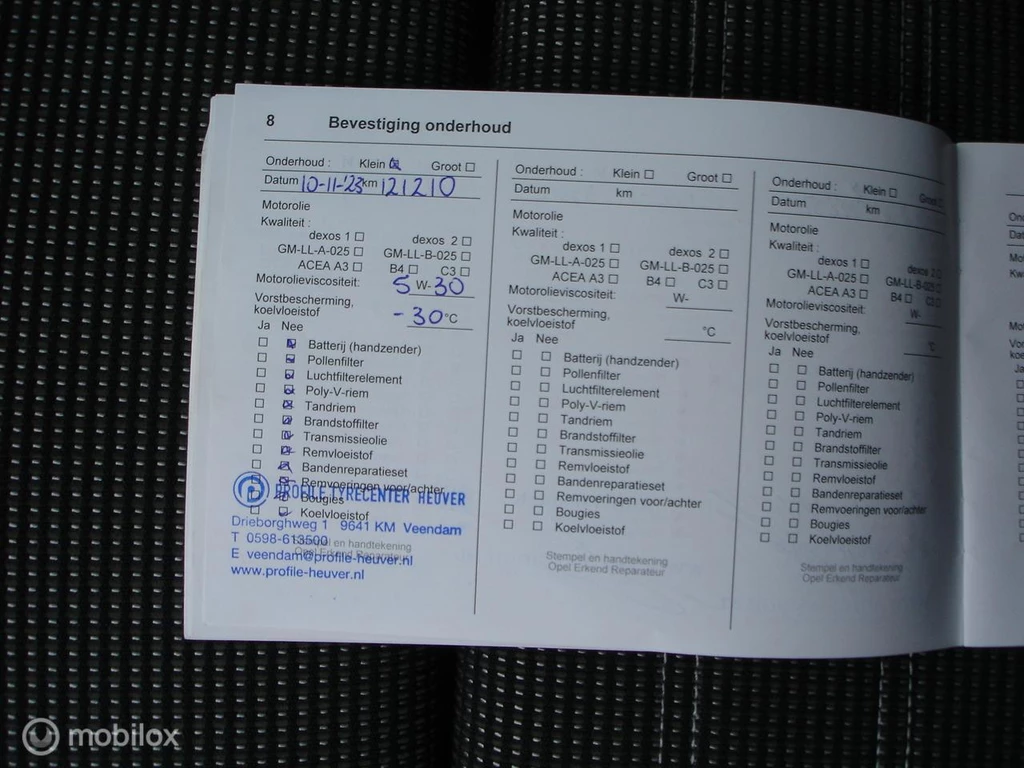 8 Bevestiging onderhoud
Onderhoud : Klein Groot
Datum 10-11-'23 km 121210
Motorolie
Kwaliteit :
dexos 1 dexos 2
GM-LL-A-025 GM-LL-B-025
ACEA A3 B4 C3
Motorolieviscositeit: 5 W-30
Vorstbescherming,
koelvloeistof -30 °C
Ja Nee
Batterij (handzender)
Pollenfilter
Luchtfilterelement
Poly-V-riem
Tandriem
Brandstoffilter
Transmissieolie
Remvloeistof
Bandenreparatieset
Remvoeringen voor/achter
PROFILE TYRECENTER HEUVER
Bougies
Koelvloeistof
Drieborghweg 1 9641 KM Veendam
T 0598-613500
Stempel en handtekening
Opel Erkend Reparateur
E veendam@profile-heuver.nl
www.profile-heuver.nl
Onderhoud : Klein Groot
Datum km
Motorolie
Kwaliteit :
dexos 1 dexos 2
GM-LL-A-025 GM-LL-B-025
ACEA A3 B4 C3
Motorolieviscositeit:
W-
Vorstbescherming,
koelvloeistof °C
Ja Nee
Batterij (handzender)
Pollenfilter
Luchtfilterelement
Poly-V-riem
Tandriem
Brandstoffilter
Transmissieolie
Remvloeistof
Bandenreparatieset
Remvoeringen voor/achter
Bougies
Koelvloeistof
Stempel en handtekening
Opel Erkend Reparateur
Onderhoud : Klein Groot
Datum km
Motorolie
Kwaliteit :
dexos 1 dexos 2
GM-LL-A-025 GM-LL-B-025
ACEA A3 B4 C3
Motorolieviscositeit:
W-
Vorstbescherming,
koelvloeistof °C
Ja Nee
Batterij (handzender)
Pollenfilter
Luchtfilterelement
Poly-V-riem
Tandriem
Brandstoffilter
Transmissieolie
Remvloeistof
Bandenreparatieset
Remvoeringen voor/achter
Bougies
Koelvloeistof
Stempel en handtekening
Opel Erkend Reparateur
mobilox